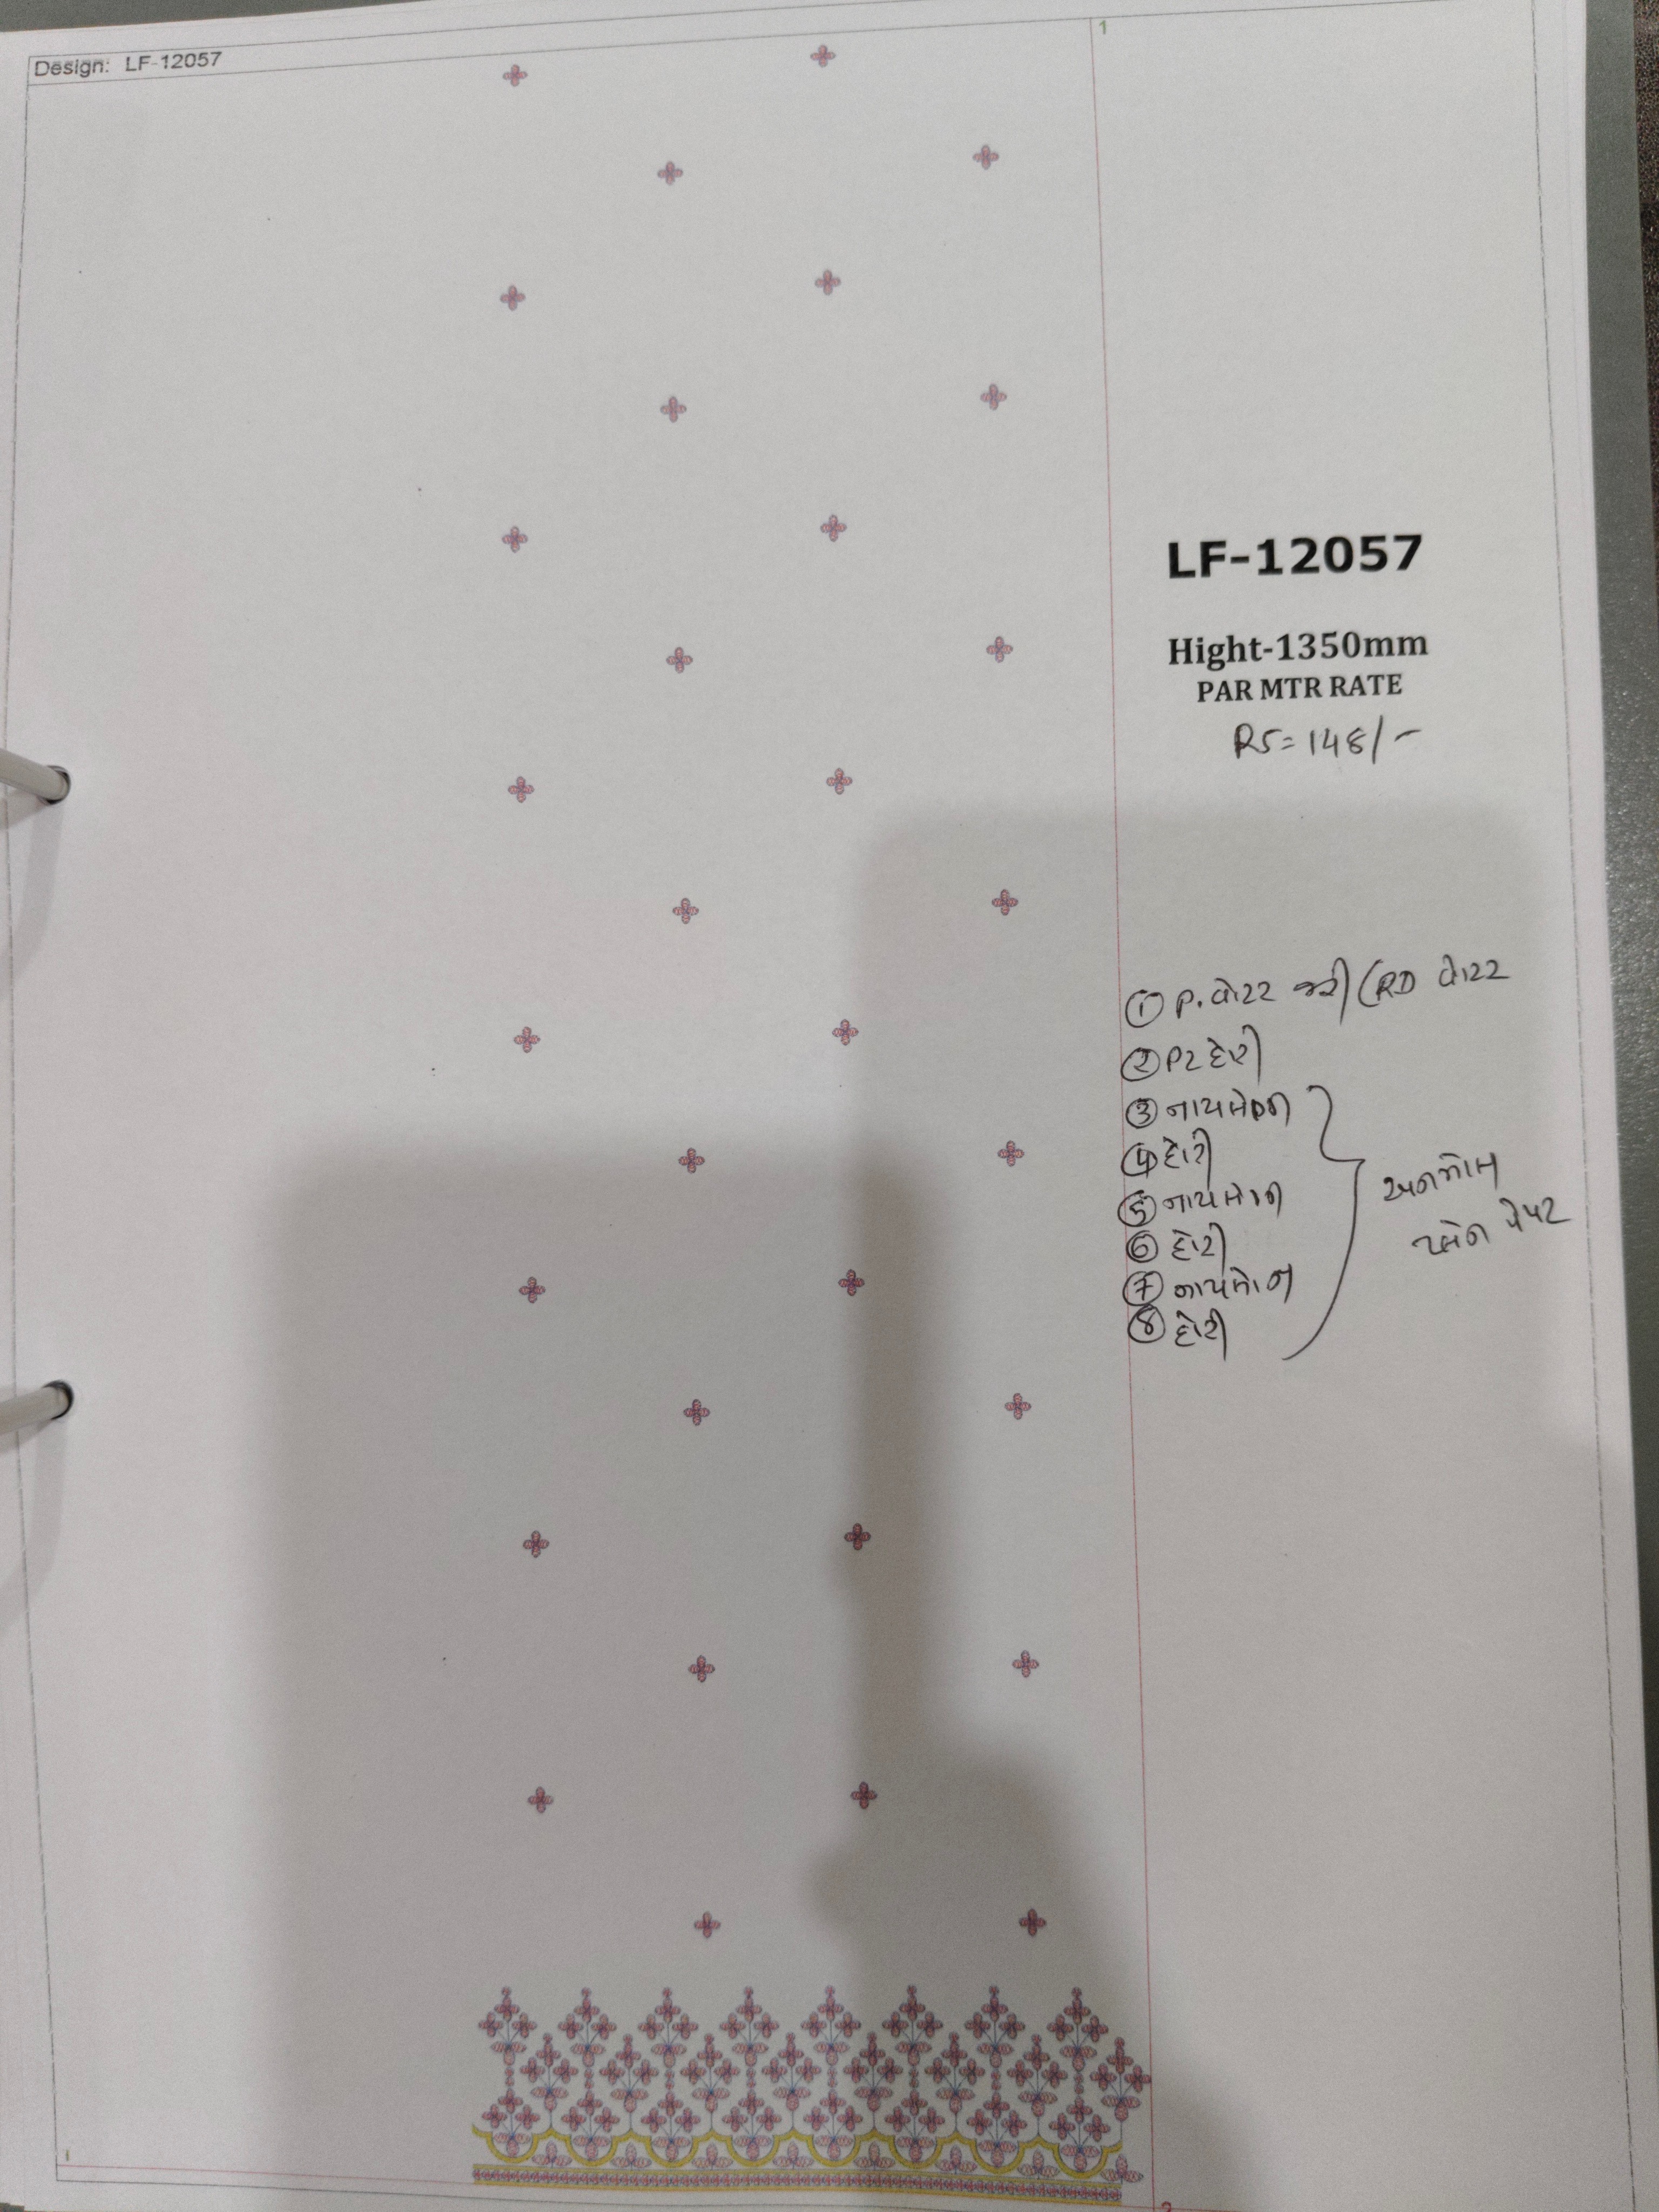 Design: LF-12057
1
LF-12057
Hight-1350mm
PAR MTR RATE
RS=148/-
① P. વોટર જરી (RD વોટર
② P2 દોરી
③ નાયલોન
④ દોરી
⑤ નાયલોન
⑥ દોરી
⑦ નાયલોન
⑧ દોરી
2